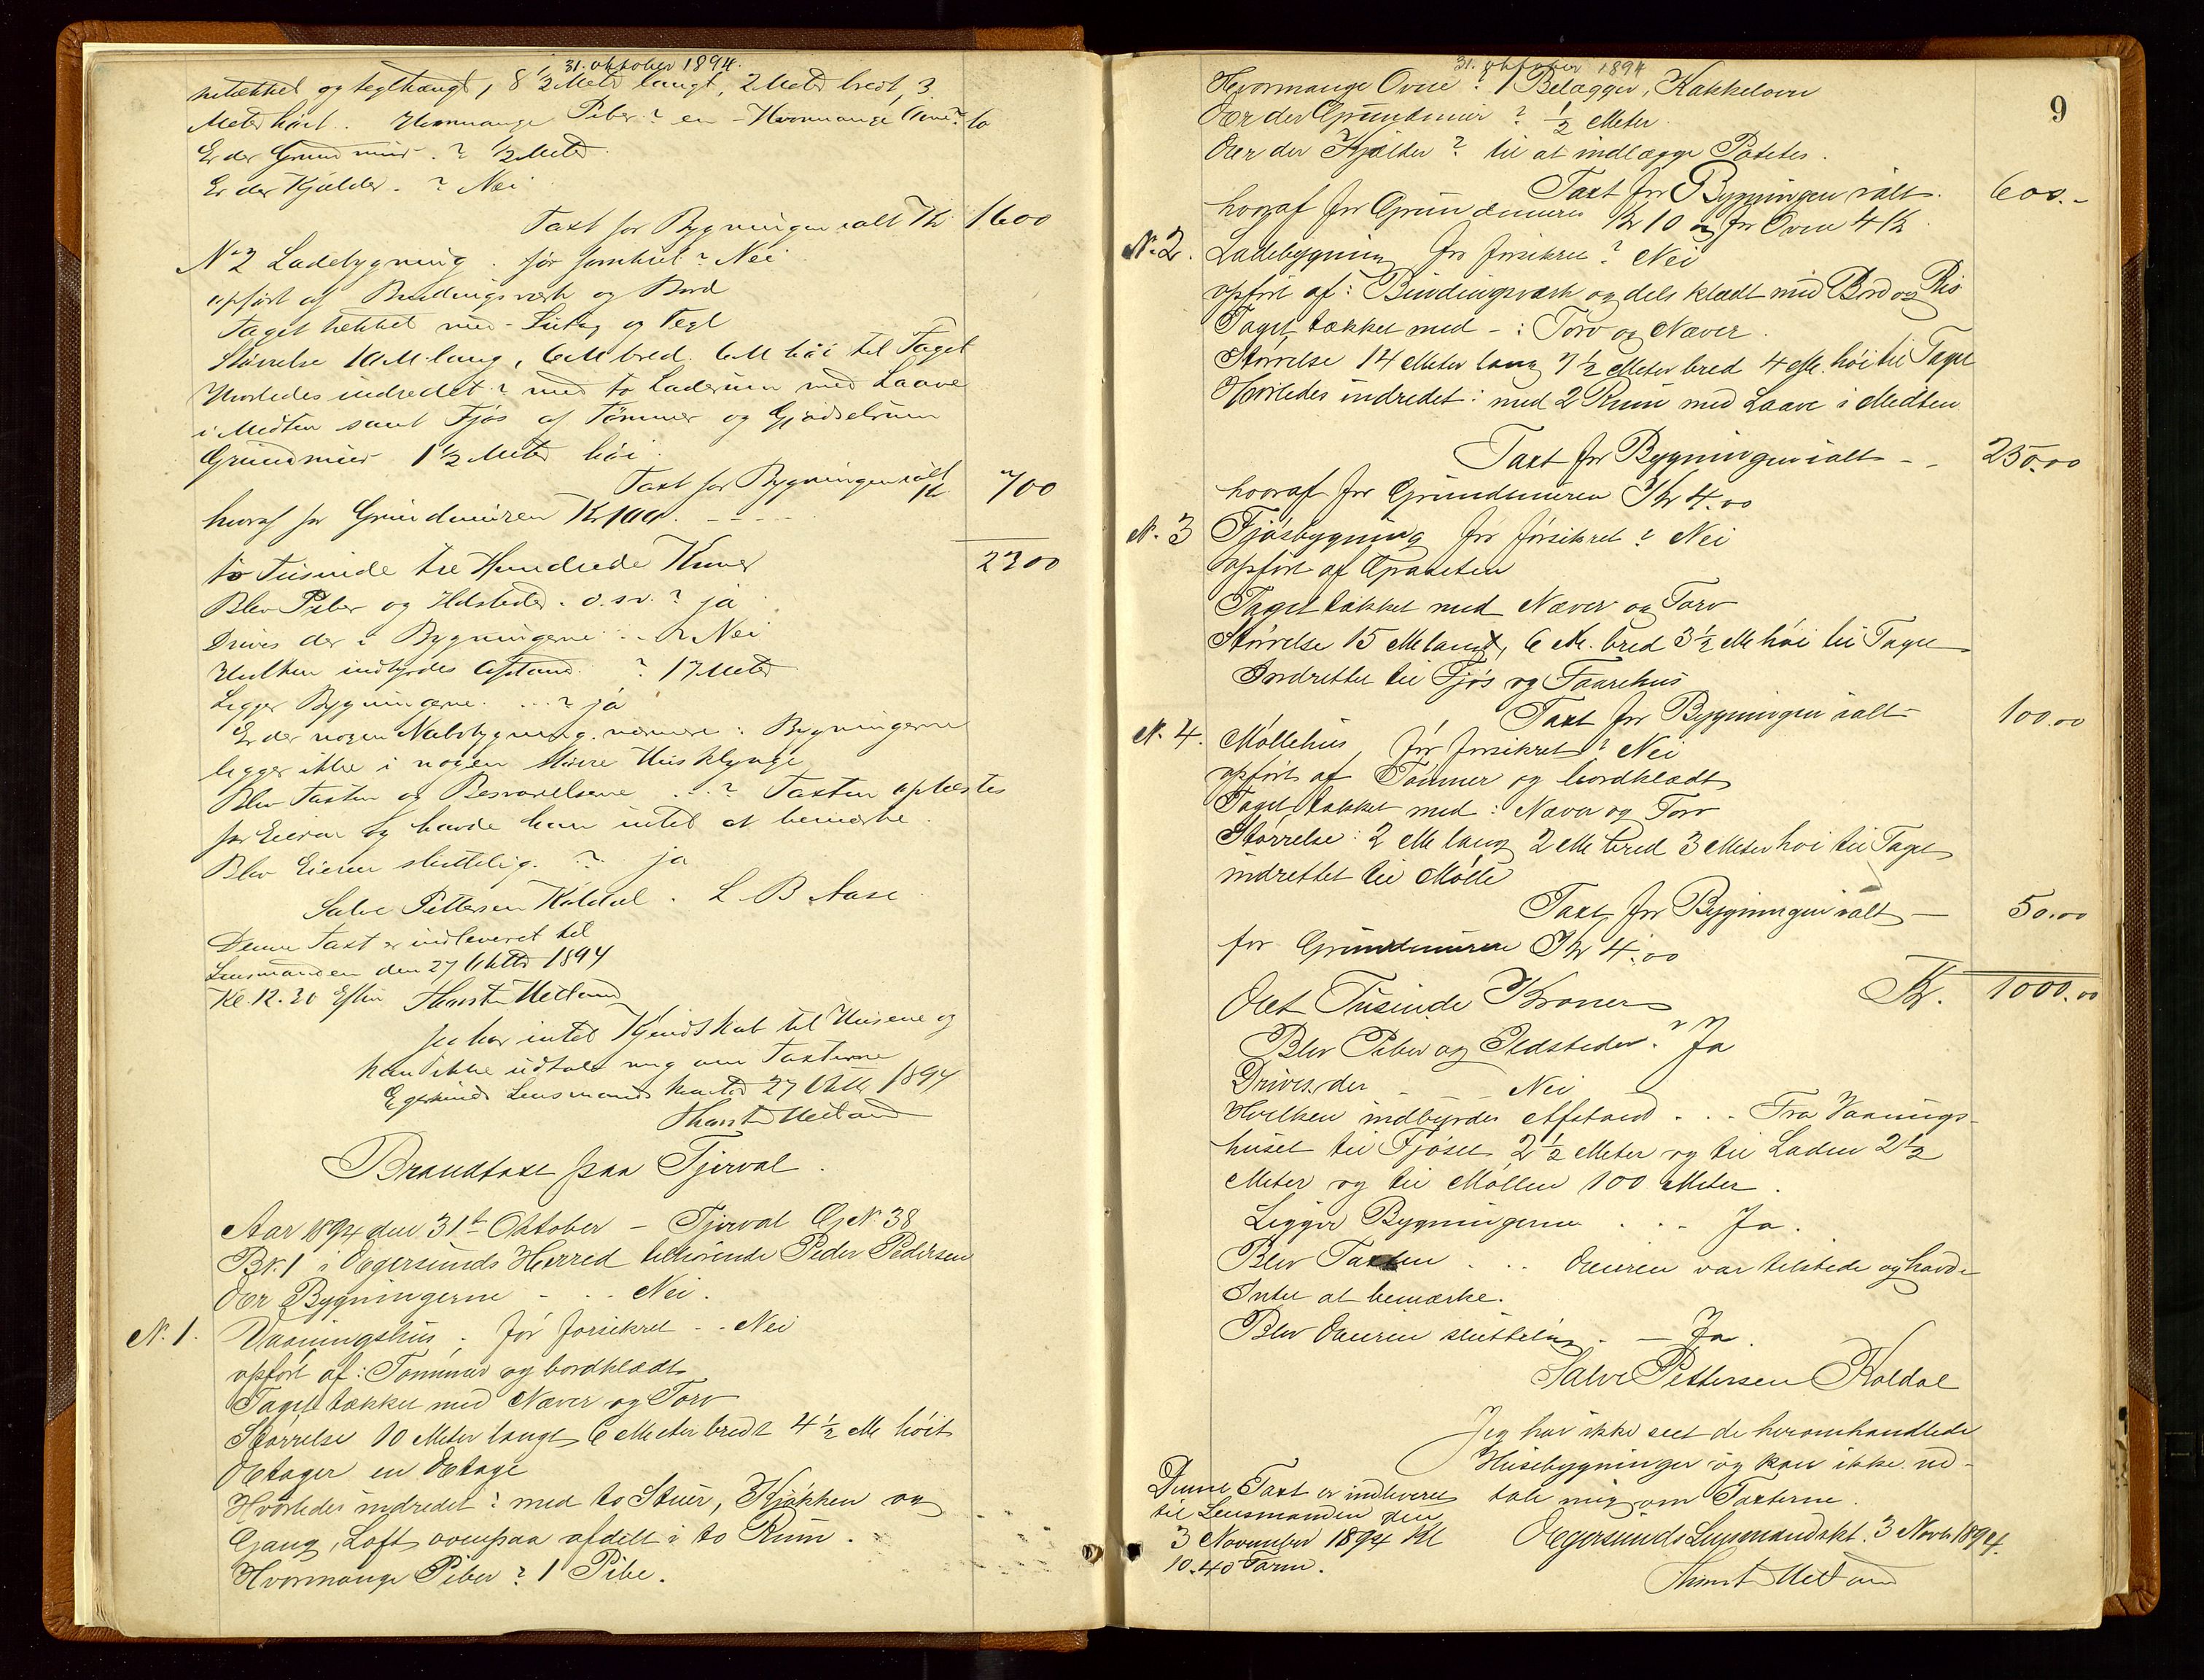 31. oktober 1894.
tættet og teglhængt, 8 1/2 Meter langt, 2 Meter bredt, 3
Meter höit. Hvormange Piber? en - Hvormange Ovne? to
Er der Grundmur. ? 1/2 Meter.
Er der Kjælder. ? Nei
Taxt for Bygningen ialt Kr. 1600
No 2 Ladebygning. för forsikret? Nei
opfört af Bindingsværk og Bord
Taget tækket med - Sutag og Tegl
Störrelse 10 M lang, 6 M bred. 6 M höi til Taget
Hvorledes indredet? med to Laderum med Laave
i Midten samt Fjös af Tömmer og Gjödselrum
Grundmur 1 1/2 Meter höi.
Taxt for Bygningen ialt Kr 700
hvoraf for Grundmuren Kr 100. - - - -
2300
to Tusinde tre Hundrede Kroner
Blev Piber og Ildsteder. o.sv.? ja
Drives der i Bygningerne . . . ? Nei
Hvilken indbyrdes Afstand. ? 17 Meter
Ligger Bygningerne. . . . ? ja
Er der nogen Nabobygning. nærmere: Bygningerne
ligger ikke i nogen större Husklynge
Blev Taxten og Besvarelserne . . . ? Taxten oplæstes
for Eieren og havde han intet at bemærke.
Blev Eieren sluttelig. ? ja
Salve Pettersen Koldal. L B Aase
Denne Taxt er indleveret til
Lensmanden den 27 Oktbr 1894
Kl. 12.30 Eftm Thorst Meland
Jeg har intet Kjendskab til Husene og
kan ikke udtale mig om Taxterne
Egersunds Lensmands kontor 27 Oktb 1894
Thorst Meland
Brandtaxt paa Tjerval.
Aar 1894 den 31te Oktober - Tjerval G.N. 38
Br. 1 i Egersunds Herred tilhörende Peder Pedersen
Er Bygningerne - . . Nei.
N. 1. Vaaningshus. för forsikret . . Nei
opfört af: Tömmer og bordklædt
Taget tækket med Næver og Torv
Störrelse 10 Meter langt 6 Meter bredt 4 1/2 M höit
Etager en Etage
Hvorledes indredet: med to Stuer, Kjökken og
Gang, Loft ovenpaa afdelt i to Rum.
Hvormange Piber? 1 Pibe.
31. oktober 1894
9
Hvormange Ovne? 1 Belægger, Kakkelovn
Er der Grundmur? 1/2 Meter
Er der Kjælder? til at indlægge Potetes.
Taxt for Bygningen ialt. 600.-
hvoraf for Grundmuren Kr 10 og for Ovne 4 Kr
N. 2. Ladebygning för forsikret? Nei
opfört af: Bindingsværk og dels klædt med Bord og Ris
Taget tækket med - : Torv og Næver.
Störrelse 14 Meter lang 7 1/2 Meter bred 4 M. höi til Taget
Hvorledes indredet: med 2 Rum med Laave i Midten
Taxt for Bygningen ialt - - 250.00
hvoraf for Grundmuren Kr 4.00
N. 3 Fjösbygning för forsikret? Nei
opfört af Graasten
Taget tækket med Næver og Torv
Störrelse 15 M langt, 6 M. bred 3 1/2 M höi til Taget
Indrettet til Fjös og Faarehus
Taxt for Bygningen ialt 100.00
N. 4. Möllehus, för forsikret? Nei
opfört af Tömmer og bordklædt
Taget tækket med: Næver og Torv
Störrelse: 2 M lang 2 M bred 3 Meter höi til Taget
indrettet til Mölle
Taxt for Bygningen ialt - 50.00
for Grundmuren Kr 4.00
Kr. 1000.00
Et Tusinde Kroner
Blev Piber og Ildsteder. ? Ja
Drives der - - - Nei
Hvilken indbyrdes Afstand . . . Fra Vaanings-
huset til Fjöset 2 1/2 Meter og til Laden 2 1/2
Meter og til Möllen 100 Meter.
Ligger Bygningerne . . - Ja.
Blev Taxten . . . Eieren var tilstede og havde
Intet at bemærke.
Blev Eieren sluttelig. - Ja.
Salve Pettersen Koldal
Jeg har ikke seet de heromhandlede
Husebygninger og kan ikke ud-
tale mig om Taxterne.
Egersunds Lensmandskt. 3 Novbr 1894.
Thorst Meland
Denne Taxt er indleveret
til Lensmanden den
3 November 1894 Kl
10.40 Form.